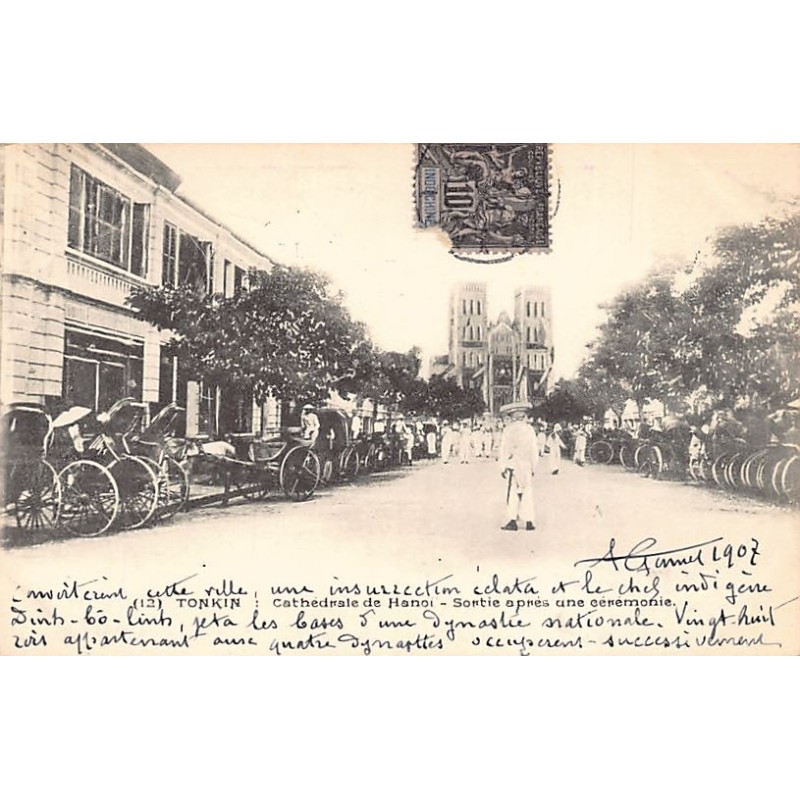 INDOCHINE
10
A Garnet 1907
convoitèrent cette ville, une insurrection éclata et le chef indigène
(12) TONKIN : Cathédrale de Hanoï - Sortie après une cérémonie.
Dinh-Bô-linh, jeta les bases d'une dynastie nationale. Vingt-huit
rois appartenant aux quatre dynasties occupèrent successivement